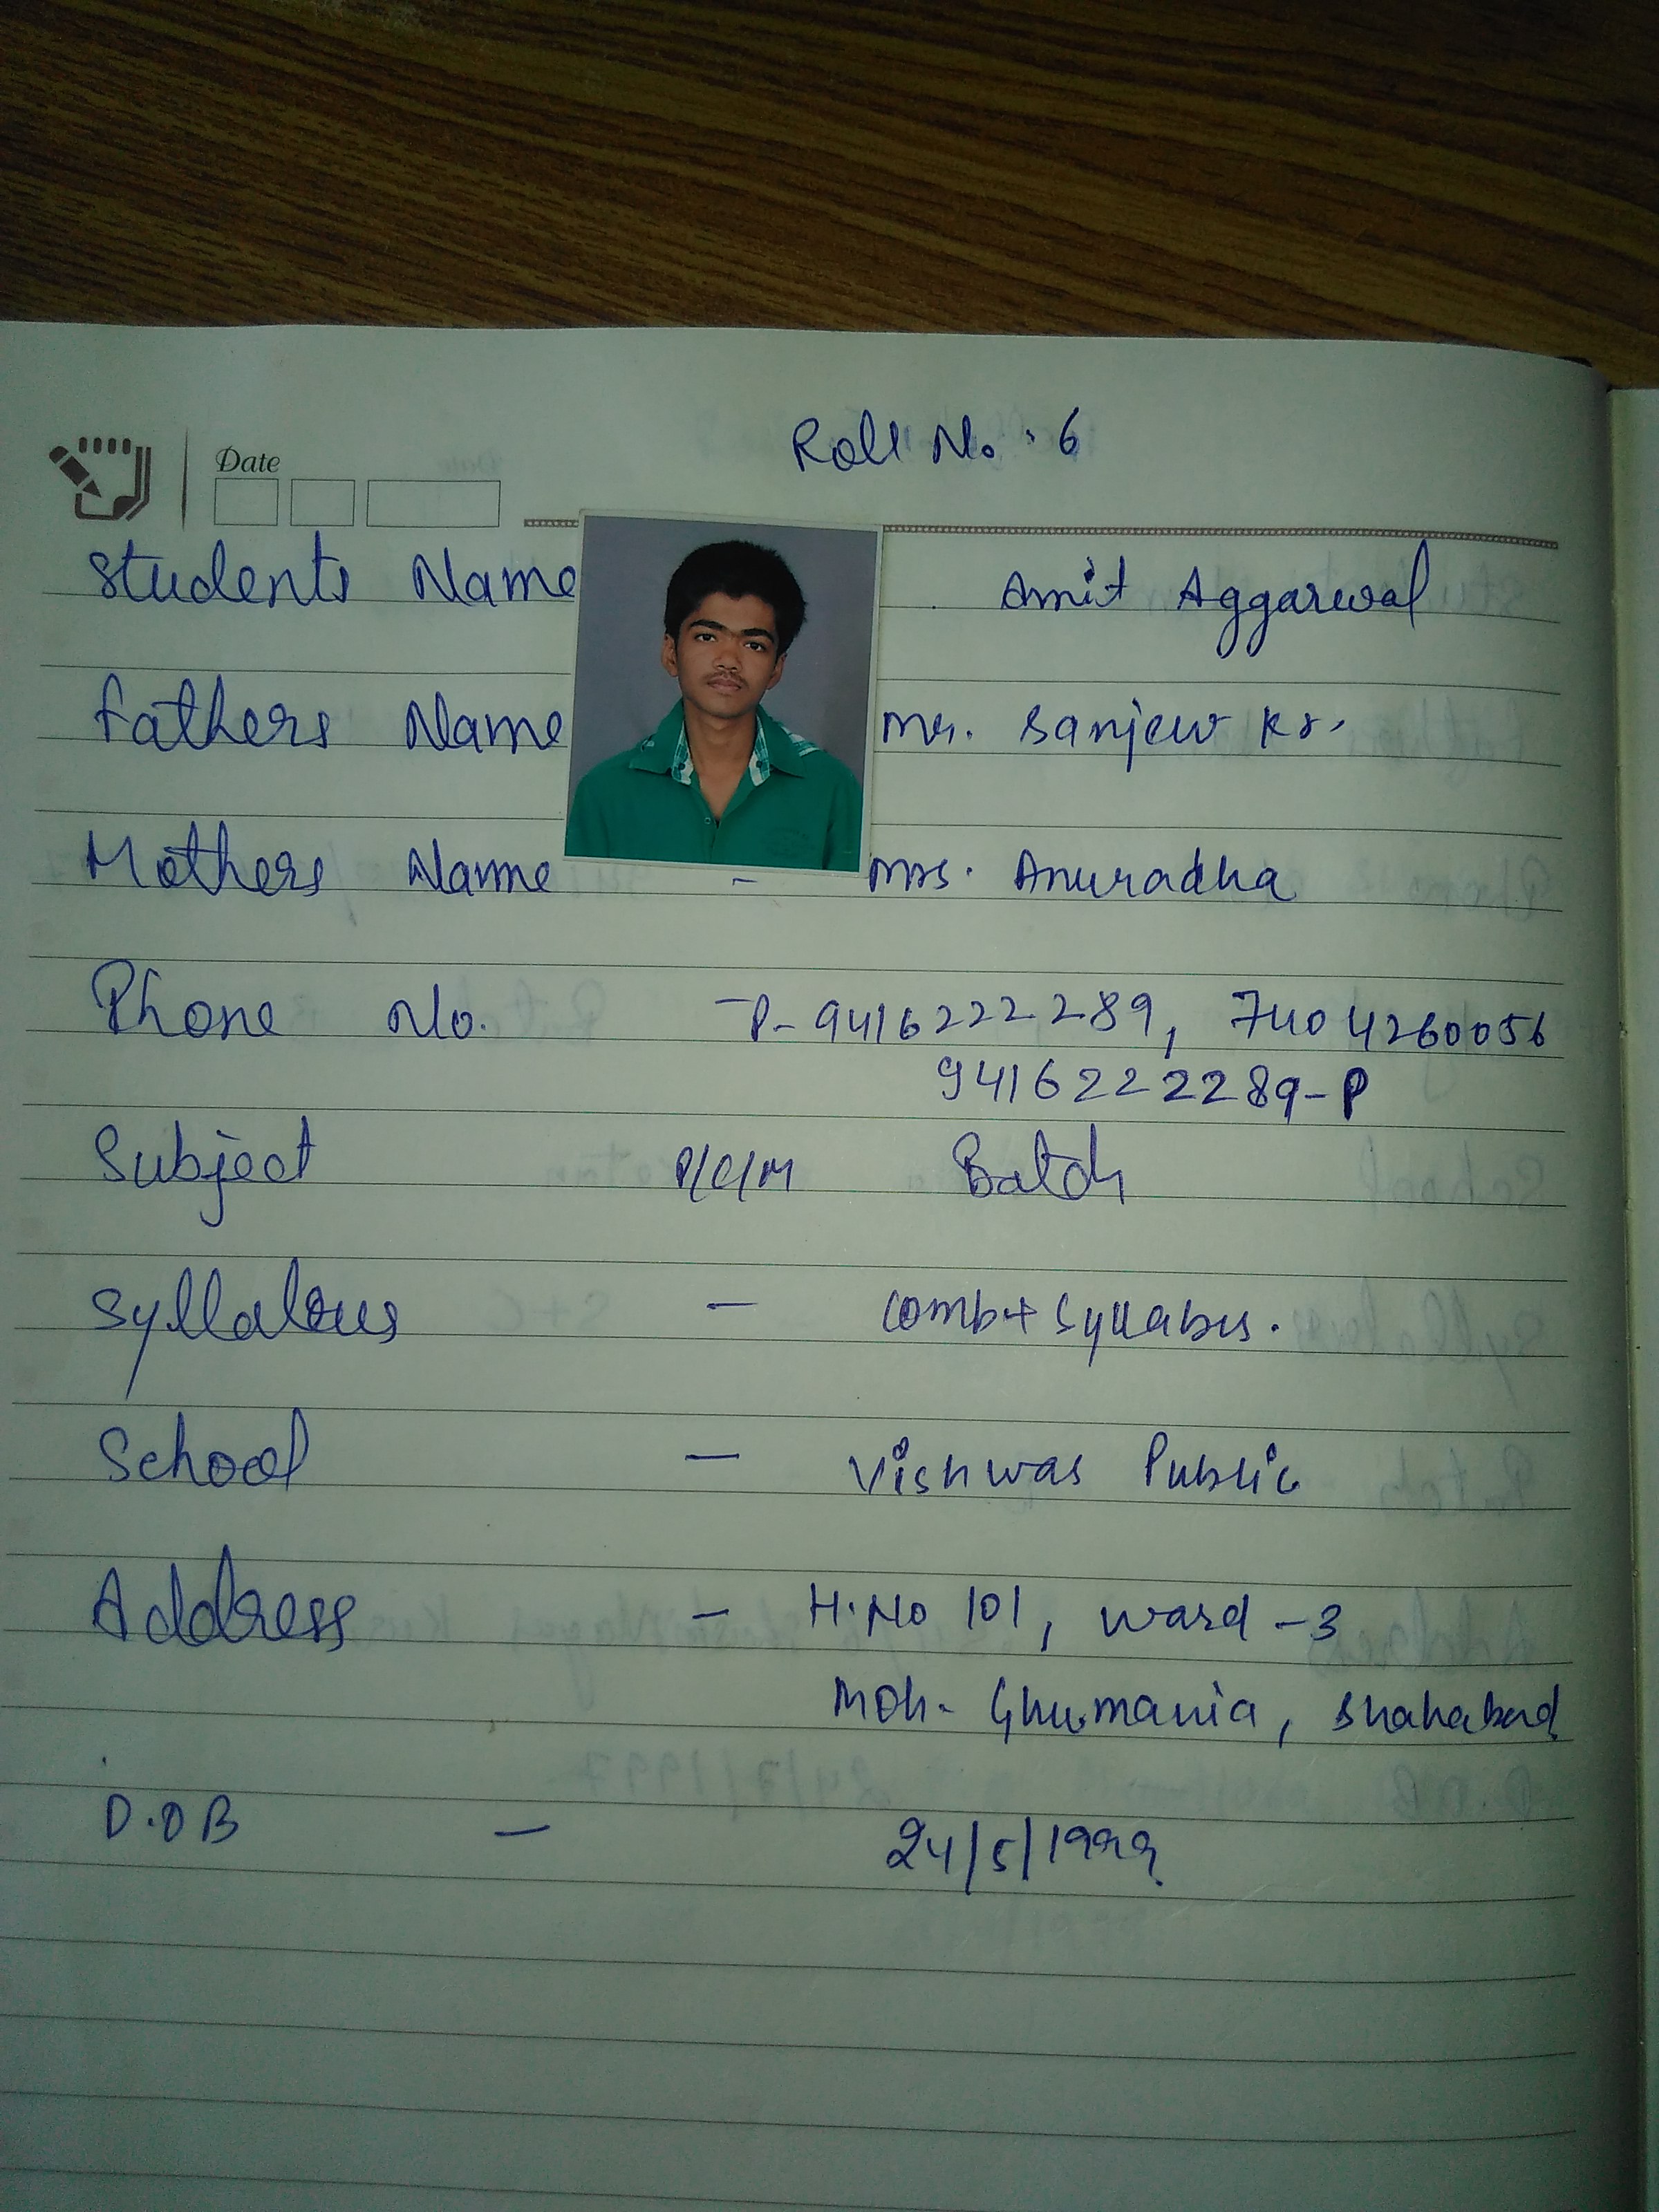 Roll No. 6
Date
Students Name Amit Aggarwal
Fathers Name Mr. Sanjeev Kr.
Mothers Name - Mrs. Anuradha
Phone No. - P- 9416222289, 7404260056
9416222289-P
Subject P/C/M Batch
Syllabus - Comb+ Syllabus.
School - Vishwas Public
Address - H.No 101, Ward -3
Moh- Ghumania, Shahabad
D.O.B - 24/5/1999